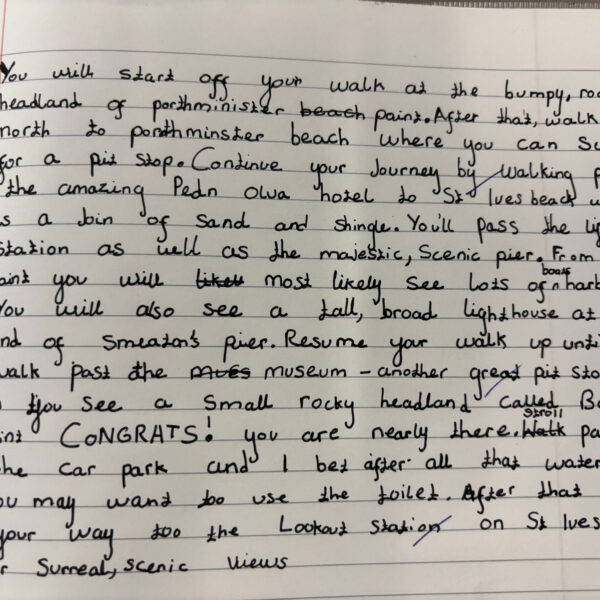 You will start off your walk at the bumpy, roc
headland of porthminister beach point. After that, walk
north to porthminster beach where you can su
for a pit stop. Continue your Journey by walking p
the amazing Pedn Olva hotel to St Ives beach w
s a bin of sand and shingle. You'll pass the li
station as well as the majestic, scenic pier. From
oint you will likell most likely see lots of boats n harb
You will also see a tall, broad lighthouse at
nd of Smeaton's pier. Resume your walk up unti
walk past the museum - another great pit sto
If you see a small rocky headland called Ba
int CONGRATS! you are nearly there. Walk stroll pa
the car park and I bet after all that water
ou may want to use the toilet. After that
your way too the Lookout station on St Ives
r surreal, scenic views